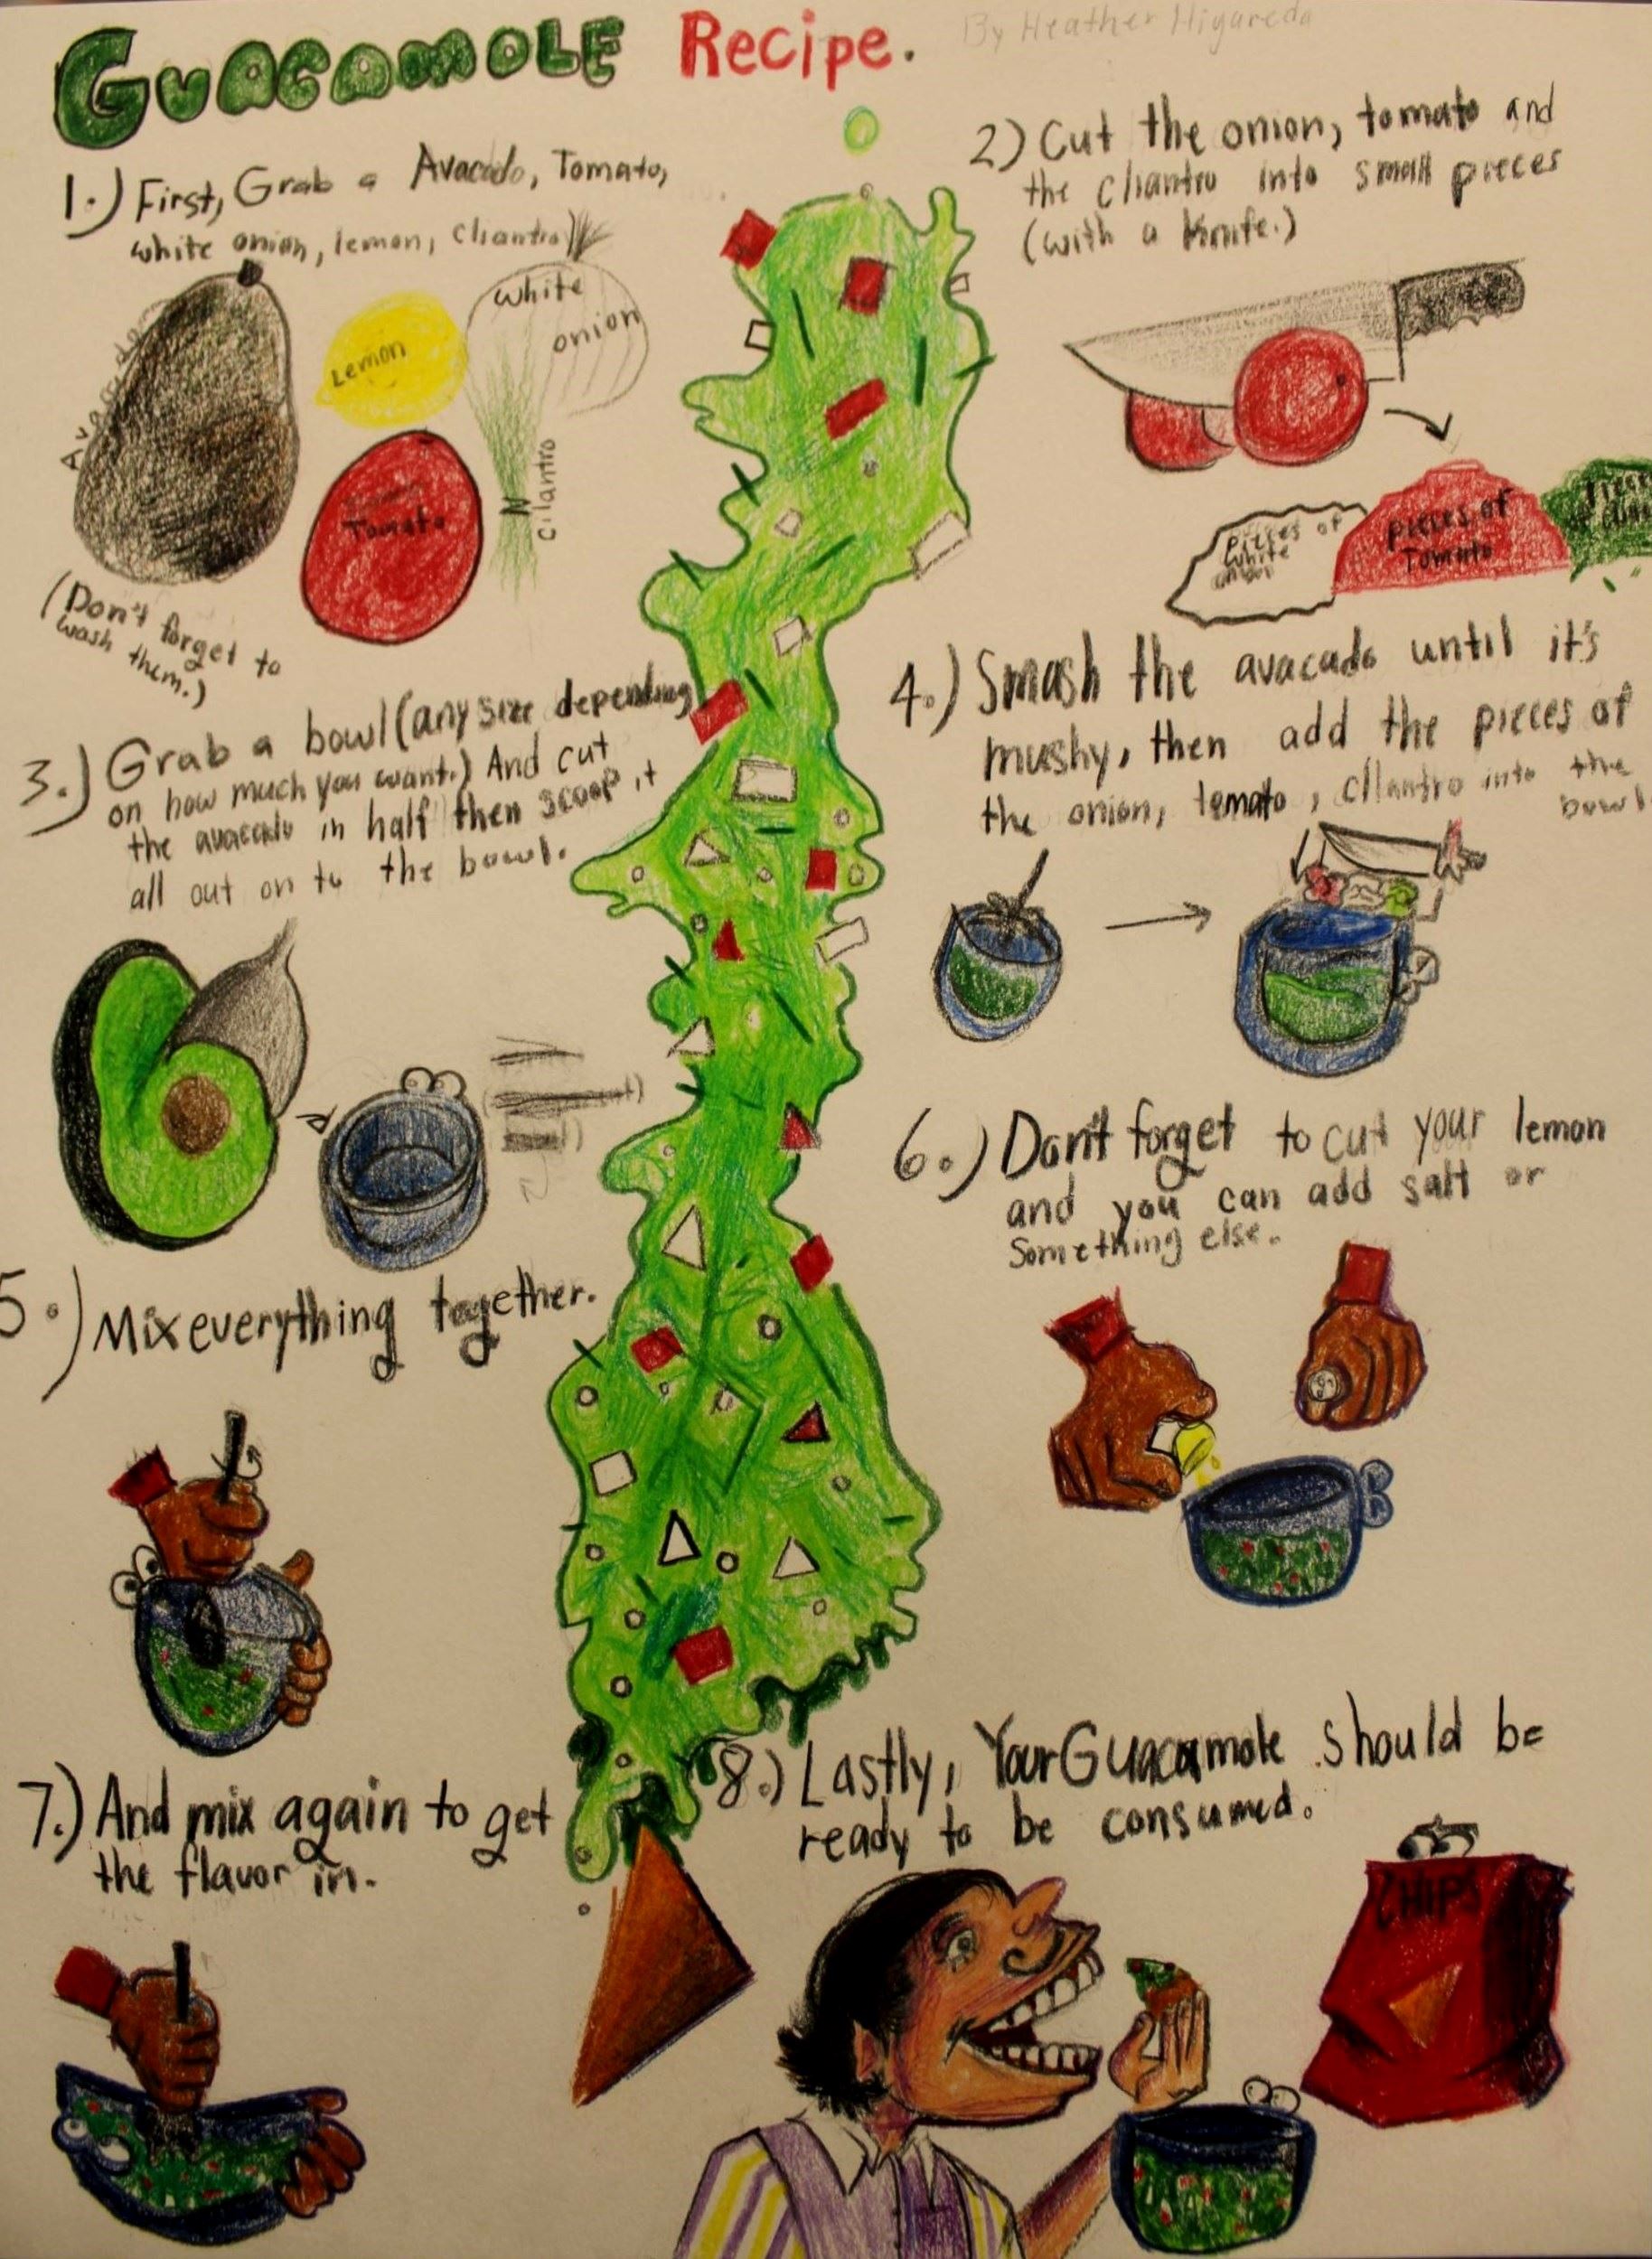 GUACAMOLE Recipe.
By Heather Higareda
1.) First, Grab a Avacado, Tomato,
white onion, lemon, cilantro
Avacado
Lemon
white
onion
Tomato
cilantro
(Don't forget to
wash them.)
2) Cut the onion, tomato and
the cilantro into small pieces
(with a Knife.)
pieces of
white
onion
pieces of
Tomato
3.) Grab a bowl (any size depending
on how much you want.) And cut
the avacado in half then scoop it
all out on to the bowl.
4.) Smash the avacado until it's
mushy, then add the pieces of
the onion, tomato, cilantro into the
bowl
5.) Mix everything together.
6.) Don't forget to cut your lemon
and you can add salt or
Something else.
7.) And mix again to get
the flavor in.
8.) Lastly, Your Guacamole should be
ready to be consumed.
CHIPS